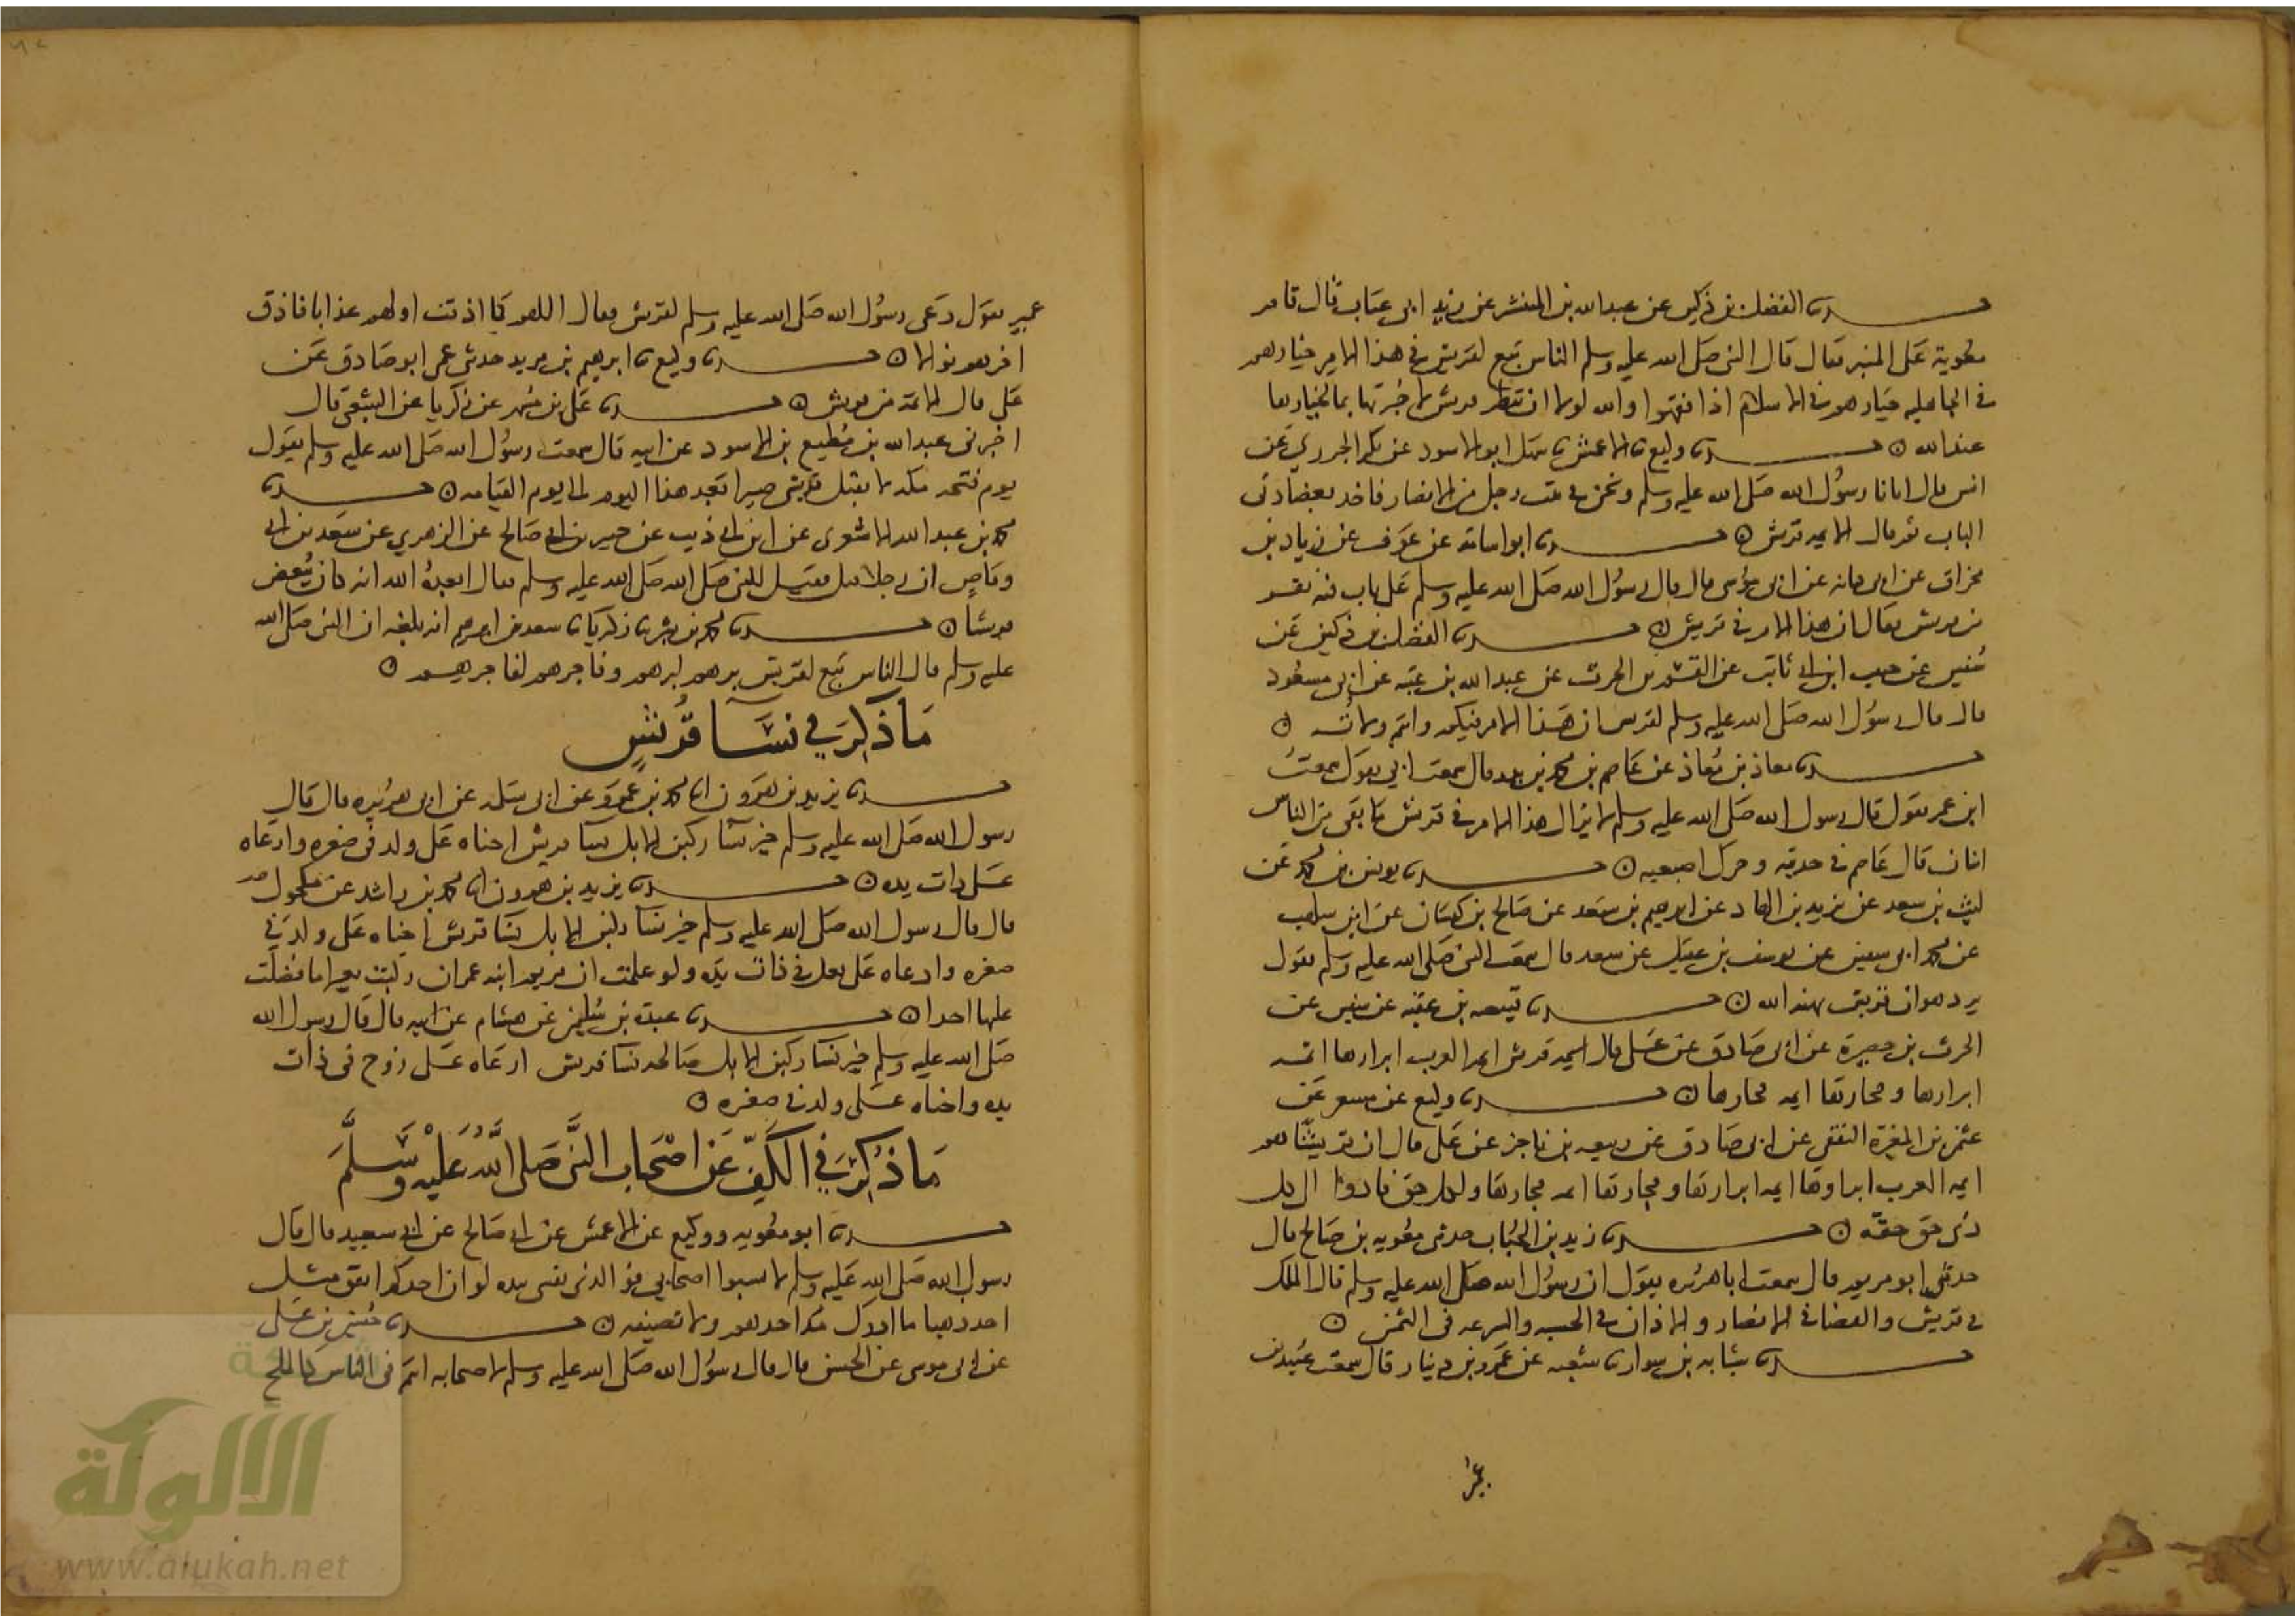 حدثنا الفضل بن دكين عن عبدالله بن المبشر عن زيد ابى عتاب قال قام
معوية على المنبر فقال قال النبى صلى الله عليه وسلم الناس تبع لقريش فى هذا الامر خيارهم
فى الجاهليه خيارهم فى الاسلام اذا فقهوا والله لولا ان تبطر قريش لاخبرتها بما لخيارها
عندالله ه حدثنا وكيع نا الاعمش نا سهل ابو الاسود عن بكير الجزري عن
انس قال اتانا رسول الله صلى الله عليه وسلم ونحن فى بيت رجل من الانصار فاخذ بعضادتى
الباب ثم قال الايمه من قريش ه حدثنا ابو اسامة عن عوف عن زياد بن
مخراق عن ابى كنانه عن ابى موسى قال قال رسول الله صلى الله عليه وسلم على باب فيه نفر
من قريش فقال ان هذا الامر فى قريش ه حدثنا الفضل بن دكين عن
سفين عن حبيب ابن ابى ثابت عن القسم بن الحرث عن عبد الله بن عتبه عن ابى مسعود
قال قال رسول الله صلى الله عليه وسلم لقريش ان هذا الامر فيكم وانتم ولاته ه
حدثنا معاذ بن معاذ عن عاصم بن محمد بن زيد قال سمعت ابى يقول سمعت
ابن عمر يقول قال رسول الله صلى الله عليه وسلم لا يزال هذا الامر فى قريش ما بقى من الناس
اثنان قال عاصم فى حديثه وحرك اصبعيه ه حدثنا يونس بن محمد عن
ليث بن سعد عن يزيد بن الهاد عن ابرهيم بن سعد عن صالح بن كيسان عن ابن شهاب
عن محمد ابى سفين عن يوسف بن عقيل عن سعد قال سمعت النبى صلى الله عليه وسلم يقول
يرد هوان قريش يهنه الله ه حدثنا قبيصه بن عقبه عن سفين عن
الحرث بن حصيرة عن ابى صادق عن على قال ايمه قريش ايمه العرب ابرارها ائمه
ابرارها وفجارها ايمه فجارها ه حدثنا وكيع عن مسعر عن
عثمن بن المغيرة الثقفى عن ابى صادق عن ربيعه بن ناجز عن على قال ان قريشا هم
ايمه العرب ابرارها ايمه ابرارها وفجارها ايمه فجارها ولكل حق فادوا الى كل
ذى حق حقه ه حدثنا زيد بن الحباب حدثنى معويه بن صالح قال
حدثنى ابو مريم قال سمعت ابا هريره يقول ان رسول الله صلى الله عليه وسلم قال الملك
فى قريش والقضا فى الانصار والاذان فى الحبشه والسرعه فى اليمن ه
حدثنا شبابه بن سوار نا شعبه عن عمرو بن دينار قال سمعت عبيد بن
عمير
عمير يقول دعى رسول الله صلى الله عليه وسلم لقريش فقال اللهم كما اذقت اولهم عذابا فاذق
اخرهم نوالا ه حدثنا وكيع نا ابرهيم بن مريد حدثنى عمى ابو صادق عن
على قال الائمة من قريش ه حدثنا على بن مسهر عن زكريا عن الشعبى قال
اخبرنى عبدالله بن مطيع بن الاسود عن ابيه قال سمعت رسول الله صلى الله عليه وسلم يقول
يوم فتح مكه لا يقتل قرشى صبرا بعد هذا اليوم الى يوم القيامه ه حدثنا
محمد بن عبد الله الاسدى عن ابن ابى ذيب عن جبير بن ابى صالح عن الزهري عن سعد بن ابى
وقاص ان رجلا قتل فقيل للنبى صلى الله صلى الله عليه وسلم فقال ابعده الله انه كان يبغض
قريشا ه حدثنا محمد بن بشر نا زكريا نا سعد بن ابرهيم انه بلغه ان النبى صلى الله
عليه وسلم قال الناس تبع لقريش برهم لبرهم وفاجرهم لفاجرهم ه
ما ذكر في نسا قريش
حدثنا يزيد بن هرون انا محمد بن عمرو عن ابى سلمه عن ابى هريره قال قال
رسول الله صلى الله عليه وسلم خير نسا ركبن الابل نسا قريش احناه على ولد فى صغره وارعاه
على ذات يده ه حدثنا يزيد بن هرون انا محمد بن راشد عن مكحول
قال قال رسول الله صلى الله عليه وسلم خير نسا ركبن الابل نسا قريش احناه على ولد فى
صغره وارعاه على بعل فى ذات يده ولو علمت ان مريم ابنه عمران ركبت بعيرا ما فضلت
عليها احدا ه حدثنا عبدة بن سليمن عن هشام عن ابيه قال قال رسول الله
صلى الله عليه وسلم خير نسا ركبن الابل صالحه نسا قريش ارعاه على زوج فى ذات
يده واحناه على ولد فى صغره ه
ما ذكر في الكف عن اصحاب النبى صلى الله عليه وسلم
حدثنا ابو معويه ووكيع عن الاعمش عن ابى صالح عن ابى سعيد قال قال
رسول الله صلى الله عليه وسلم لا تسبوا اصحابي فو الذى نفسى بيده لو ان احدكم انفق مثل
احد ذهبا ما ادرك مد احدهم ولا نصيفه ه حدثنا حسين بن على
عن ابى موسى عن الحسن قال قال رسول الله صلى الله عليه وسلم لاصحابه انتم فى الناس كالملح
الألوكة
www.alukah.net